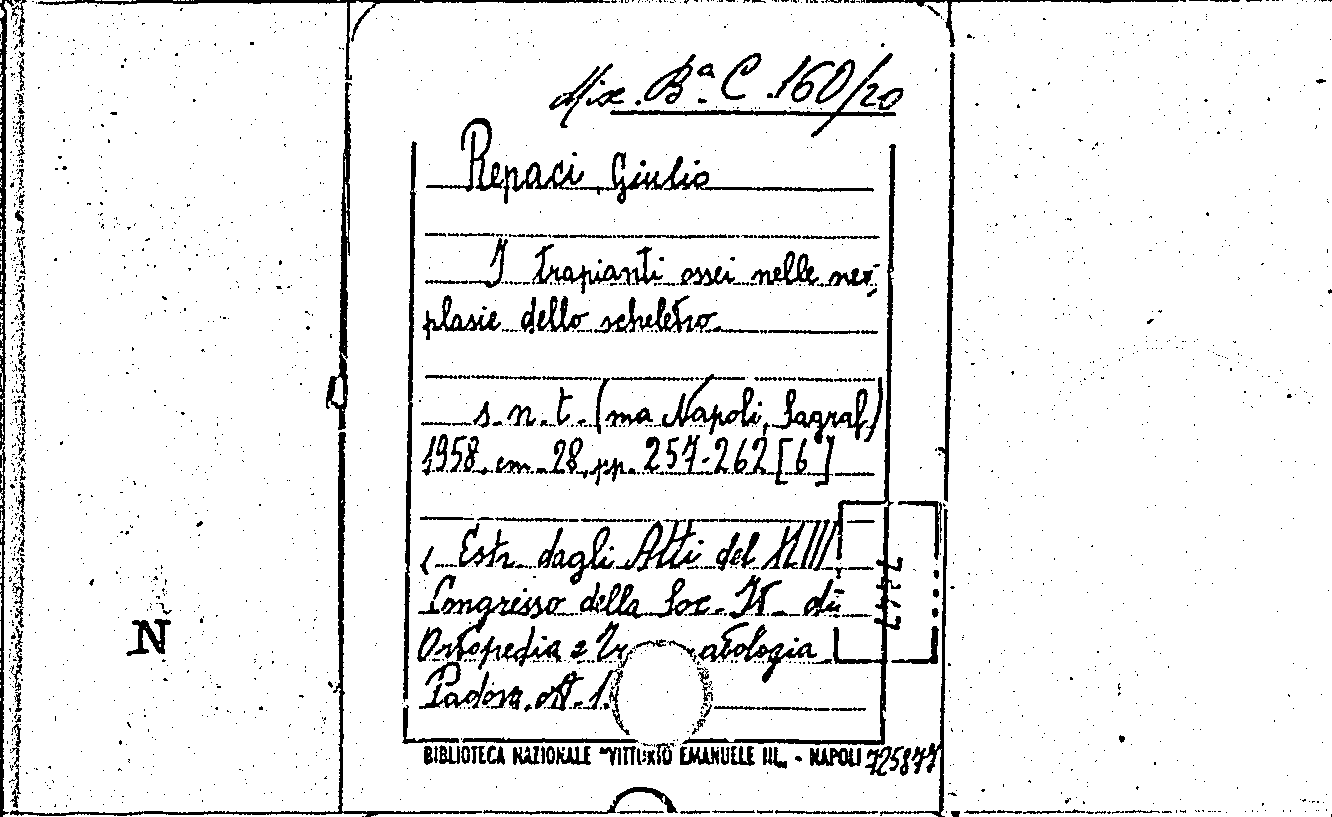 Misc. Bª. C. 160/20
Repaci, Giulio
I trapianti ossei nelle neo-
plasie dello scheletro.
s. n. t. (ma Napoli, Sagraf)
1958. cm. 28, pp. 257-262 [6]
Estr. dagli Atti del XLIII
Congresso della Soc. It. di
Ortopedia e Tr atologia
Padova.
N
BIBLIOTECA NAZIONALE "VITTORIO EMANUELE III„ - NAPOLI 725877